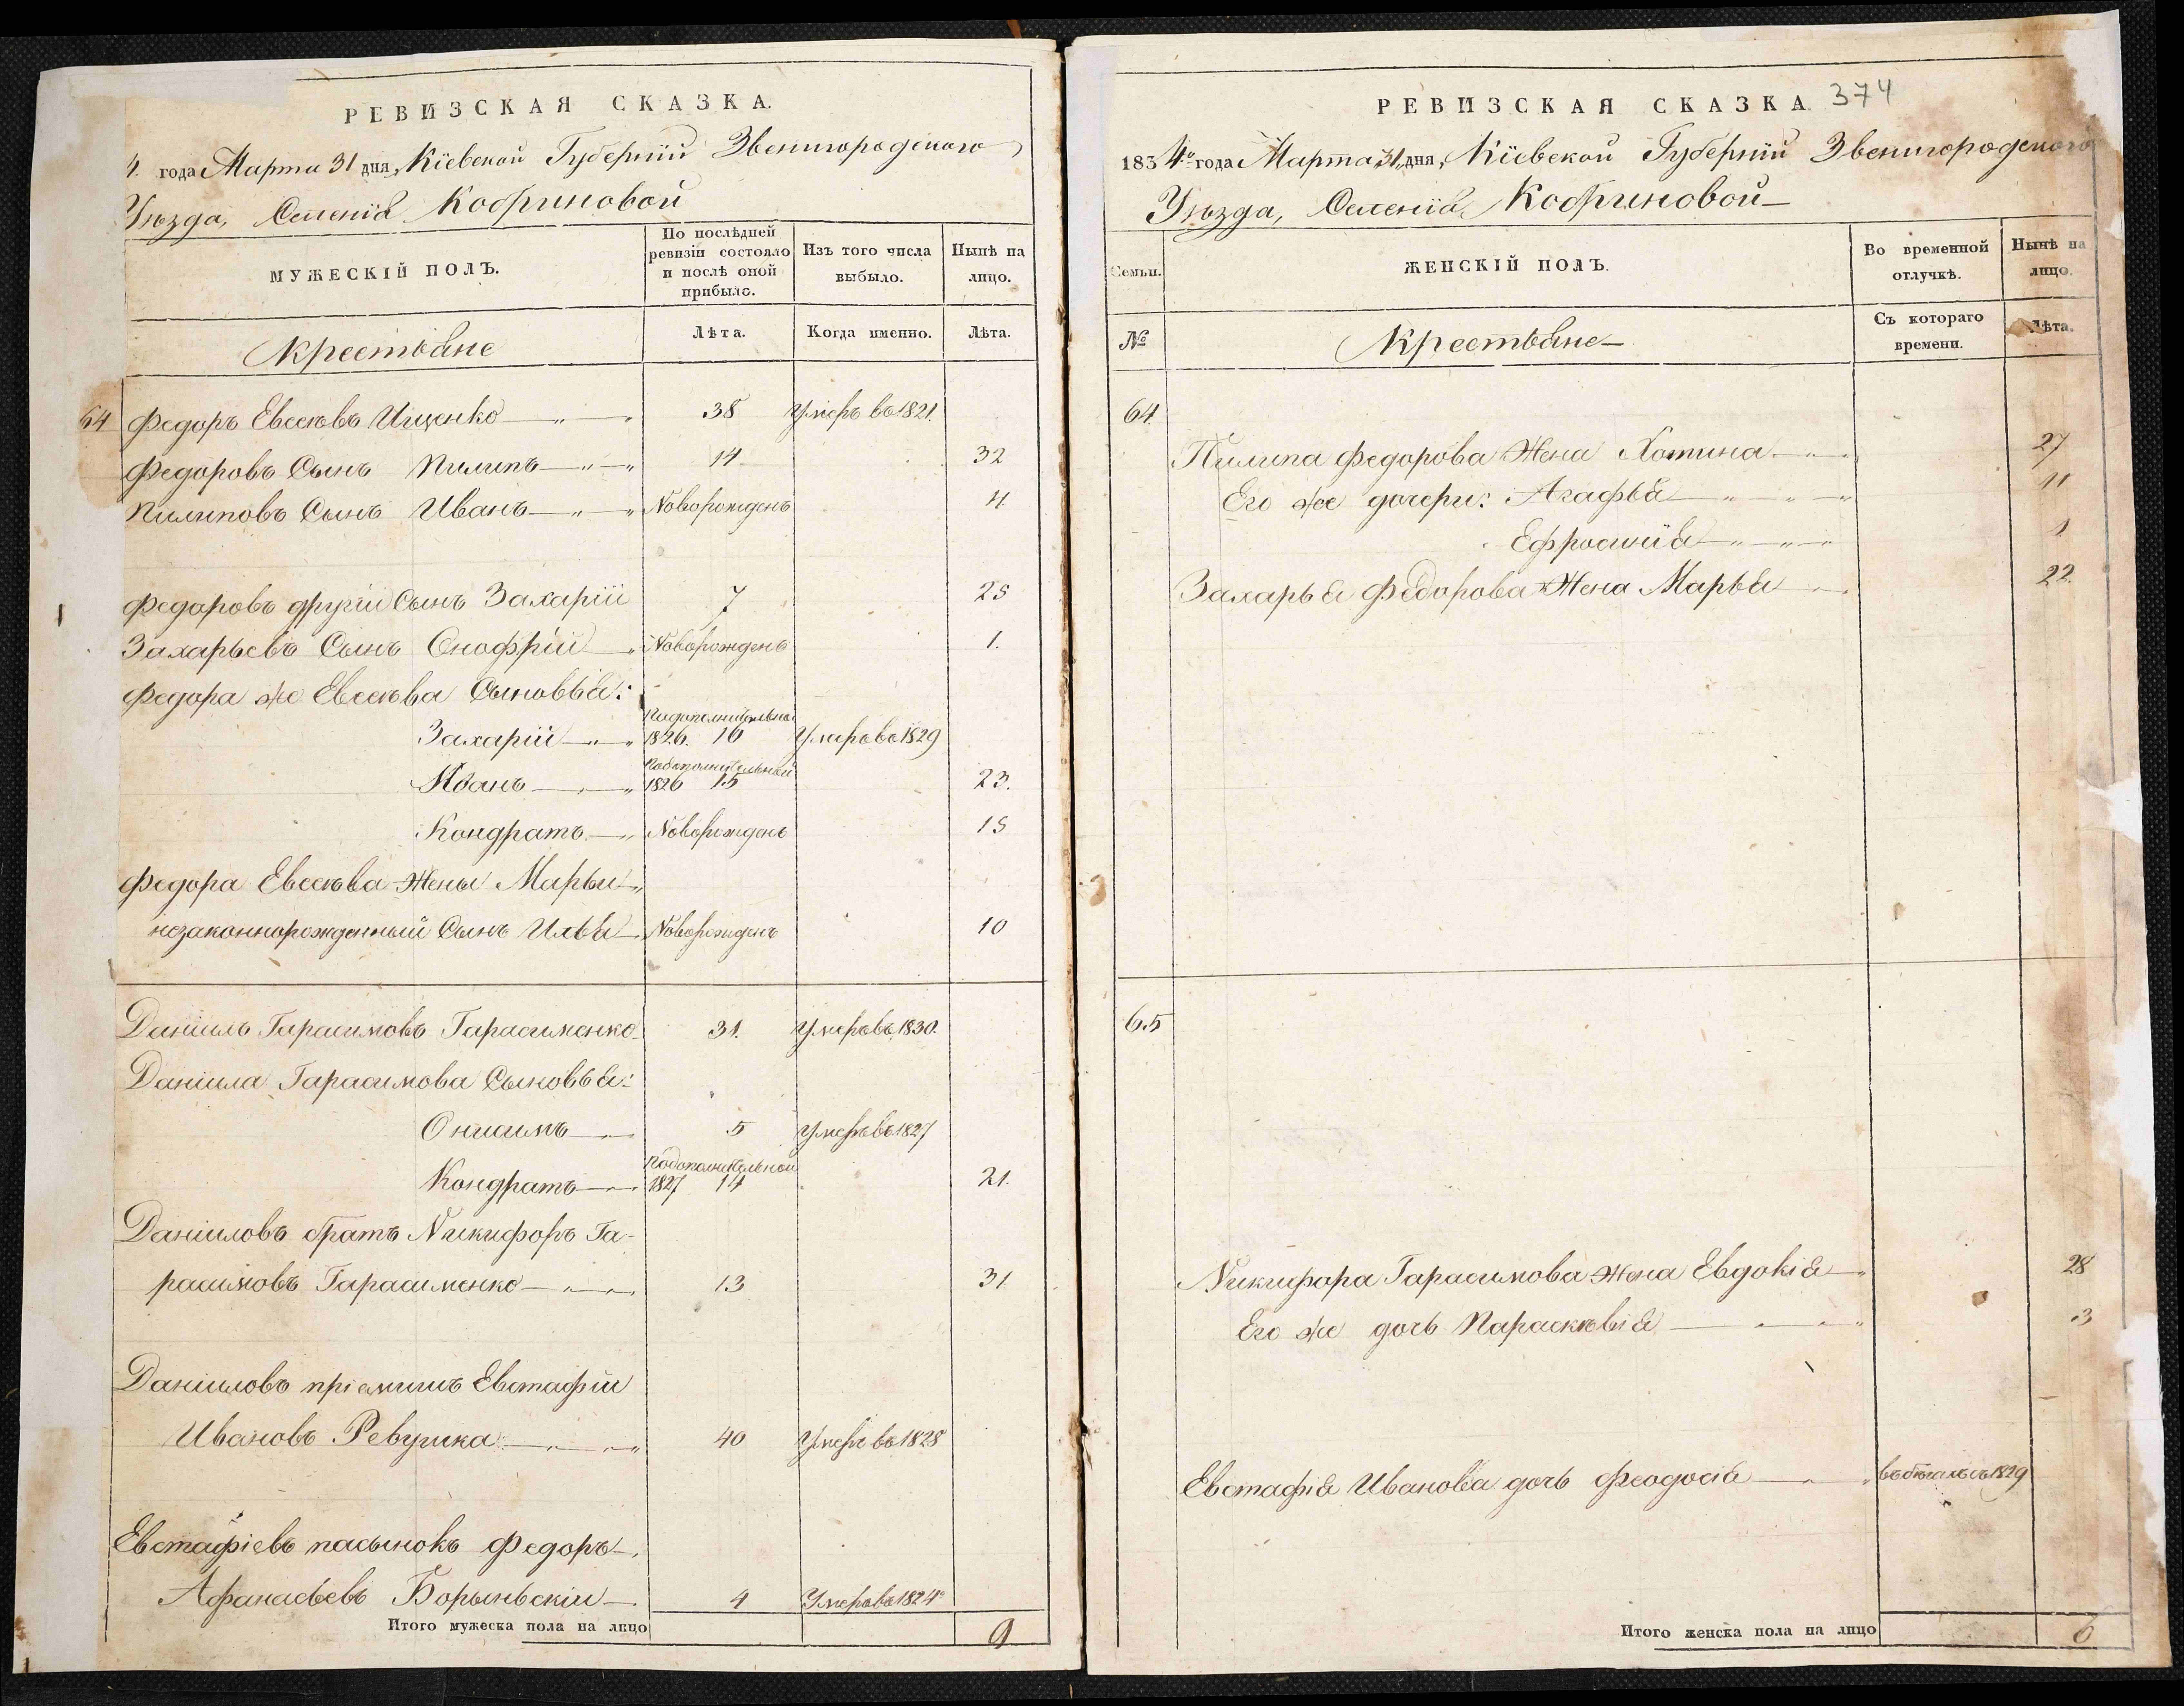 РЕВИЗСКАЯ СКАЗКА.
4. года Марта 31 дня, Кіевской Губерніи Звенигородского
Уѣзда, Селенія Кобриновой
МУЖЕСКІЙ ПОЛЪ.
По послѣдней ревизіи состояло и послѣ оной прибыло.
Изъ того числа выбыло.
Нынѣ на лицо.
Крестьяне
Лѣта.
Когда именно.
Лѣта.
64 Федоръ Евсеѣвъ Ищенко 38 Умеръ въ 1821.
Федоровъ Сынъ Пилипъ 14 32
Пилиповъ Сынъ Иванъ Новорожденъ 4.
Федоровъ другій Сынъ Захарій 7 25
Захарьевъ Сынъ Онофрій Новорожденъ 1.
Федора же Евсеѣва Сыновья:
Захарій 1826. 16 Умеръ въ 1829
Иванъ 1826 15 23.
Кондратъ Новорожденъ 15
Федора Евсеѣва Жены Марьи
незаконнорожденный Сынъ Илья Новорожденъ 10
Даніилъ Гарасимовъ Гарасименко 31. Умеръ въ 1830.
Даніила Гарасимова Сыновья:
Онисимъ 5 Умеръ въ 1827
КондратъПодополнительной 1827 14 21.
Даніиловъ братъ Никифоръ Га-
расимовъ Гарасименко 13 31
Даніиловъ пріемишъ Евстафій
Ивановъ Ревушка 40 Умеръ въ 1828
Евстафіевъ пасынокъ Федоръ
Афанасьевъ Борыньскій 4 Умеръ въ 1824
Итого мужеска пола на лицо 9
РЕВИЗСКАЯ СКАЗКА. 374
1834го года Марта 31 дня, Кіевской Губерніи Звенигородского
Уѣзда, Селенія Кобриновой
Семьи.
ЖЕНСКІЙ ПОЛЪ.
Во временной отлучкѣ.
Нынѣ на лицо.
№
Крестьяне
Съ котораго времени.
Лѣта.
64.
Пилипа Федорова Жена Хотина 27
Его же дочери: Агафья 11
Ефросинія 1
Захарья Федорова Жена Марья 22.
65
Никифора Гарасимова Жена Евдокія 28
Его же дочь Параскевія 3
Евстафія Иванова дочь Феодосія 1829
Итого женска пола на лицо 6